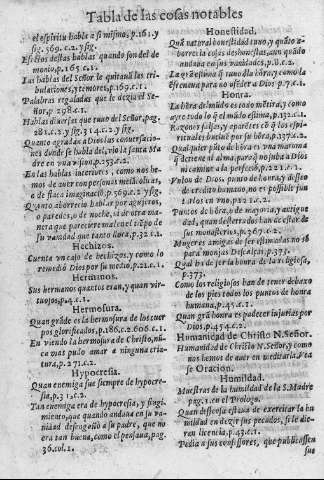 Tabla de las cosas notables
el espiritu hable a si mismo, p.161. y
sig. 569. c.2. y sig.
Efectos destas hablas quando son del de-
monio, p.165. c.1.
Las hablas del Señor le quitauã las tri-
bulaciones, y temores, p.169. c.1.
Palabras regaladas que le dezia el Se-
ñor, p. 298. c.1.
Hablas diuersas que tuuo del Señor, pag.
281. c.2. y sig. 314. c.2. y sig.
Quanto agradã a Dios las conuersacio-
nes donde se habla del, viò la santa Ma-
dre en vna vision, p.253. c.2.
En las hablas interiores, como nos he-
mos de auer con personas melãcolicas,
o de flaca imaginaciõ, p. 569. c.2. y sig.
Quanto aborrecio hablar por agujeros,
o paredes, o de noche, ni de otra ma-
nera que pareciere mal en el tiẽpo de
su vanidad que tanto llora, p.32. c.1.
Hechizos.
Cuenta vn caso de hechizos, y como lo
remedió Dios por su medio, p.21. c.1.
Hermanos.
Sus hermanos quantos eran, y quan vir-
tuosos, p.4. c.1.
Hermosura.
Quan grãde es la hermosura de los cuer
pos glorificados, p.186. c.2. 606. c.1.
En viendo la hermosura de Christo, nũ-
ca mas pudo amar a ninguna cria-
tura, p.271. c.2.
Hypocresia.
Quan enemiga fue siempre de hypocre-
sia, p.31. c.2.
Tan enemiga era de hypocresia, y fingi-
miento, que quando andaua en su va-
nidad desengañò a su padre, que no
era tan buena, como el pensaua, pag.
36. col.1.
Honestidad.
Quã natural honestidad tuuo, y quãto a-
borrecia cosas deshonestas, aun quãdo
andaua en sus vanidades, p.8. c.2.
La grã estima q̃ tuuo dla hõra, y como la
era freno para no ofẽder a Dios p.7. c.1.
Honra.
La hõra del mũdo es todo mẽtira, y como
ayre todo lo q̃ el mũdo estima, p.132. c.1.
Razones falsas, y aparẽtes cõ q̃ los espi-
rituales buelẽ por su hõra, p.137. c.2.
Qualquier pũto de hõra es vna maroma
q̃ detiene al alma, para q̃ no suba a Dios
ni camine a la perfecciõ, p.221. c.1.
Vnlos de Dios, punto de honra, y desseo
de credito humano, no es possible jun
tarlos en vno, p.22. c.2.
Puntos de hõra, o de mayoria, y antigue
dad, quan desterrados han de estar de
sus monasterios, p.367. c.2.
Mugeres amigas de ser estimadas no sõ
para monjas Descalças, p.373.
Qual ha de ser la honra de la religiosa,
p.373.
Como los religiosos han de tener debaxo
de los pies todos los puntos de honra
humana, p.45. c.1.
Quan grã honra es padecer injurias por
Dios, p.454. c.2.
Humanidad de Christo N. Señor.
Humanidad de Christo N. Señor, y como
nos hemos de auer en meditarla, Vea
se Oracion.
Humildad.
Muestras de la humildad de la S. Madre
pag.1. en el Prologo.
Quan desseosa estaua de exercitar la hu
mildad en dezir sus pecados, si le die-
ran licencia, p.43. c.1.
Pedia a sus confessores, que publicassen
sus